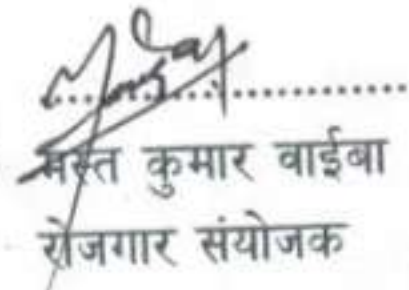 मस्त कुमार वाईबा
रोजगार संयोजक